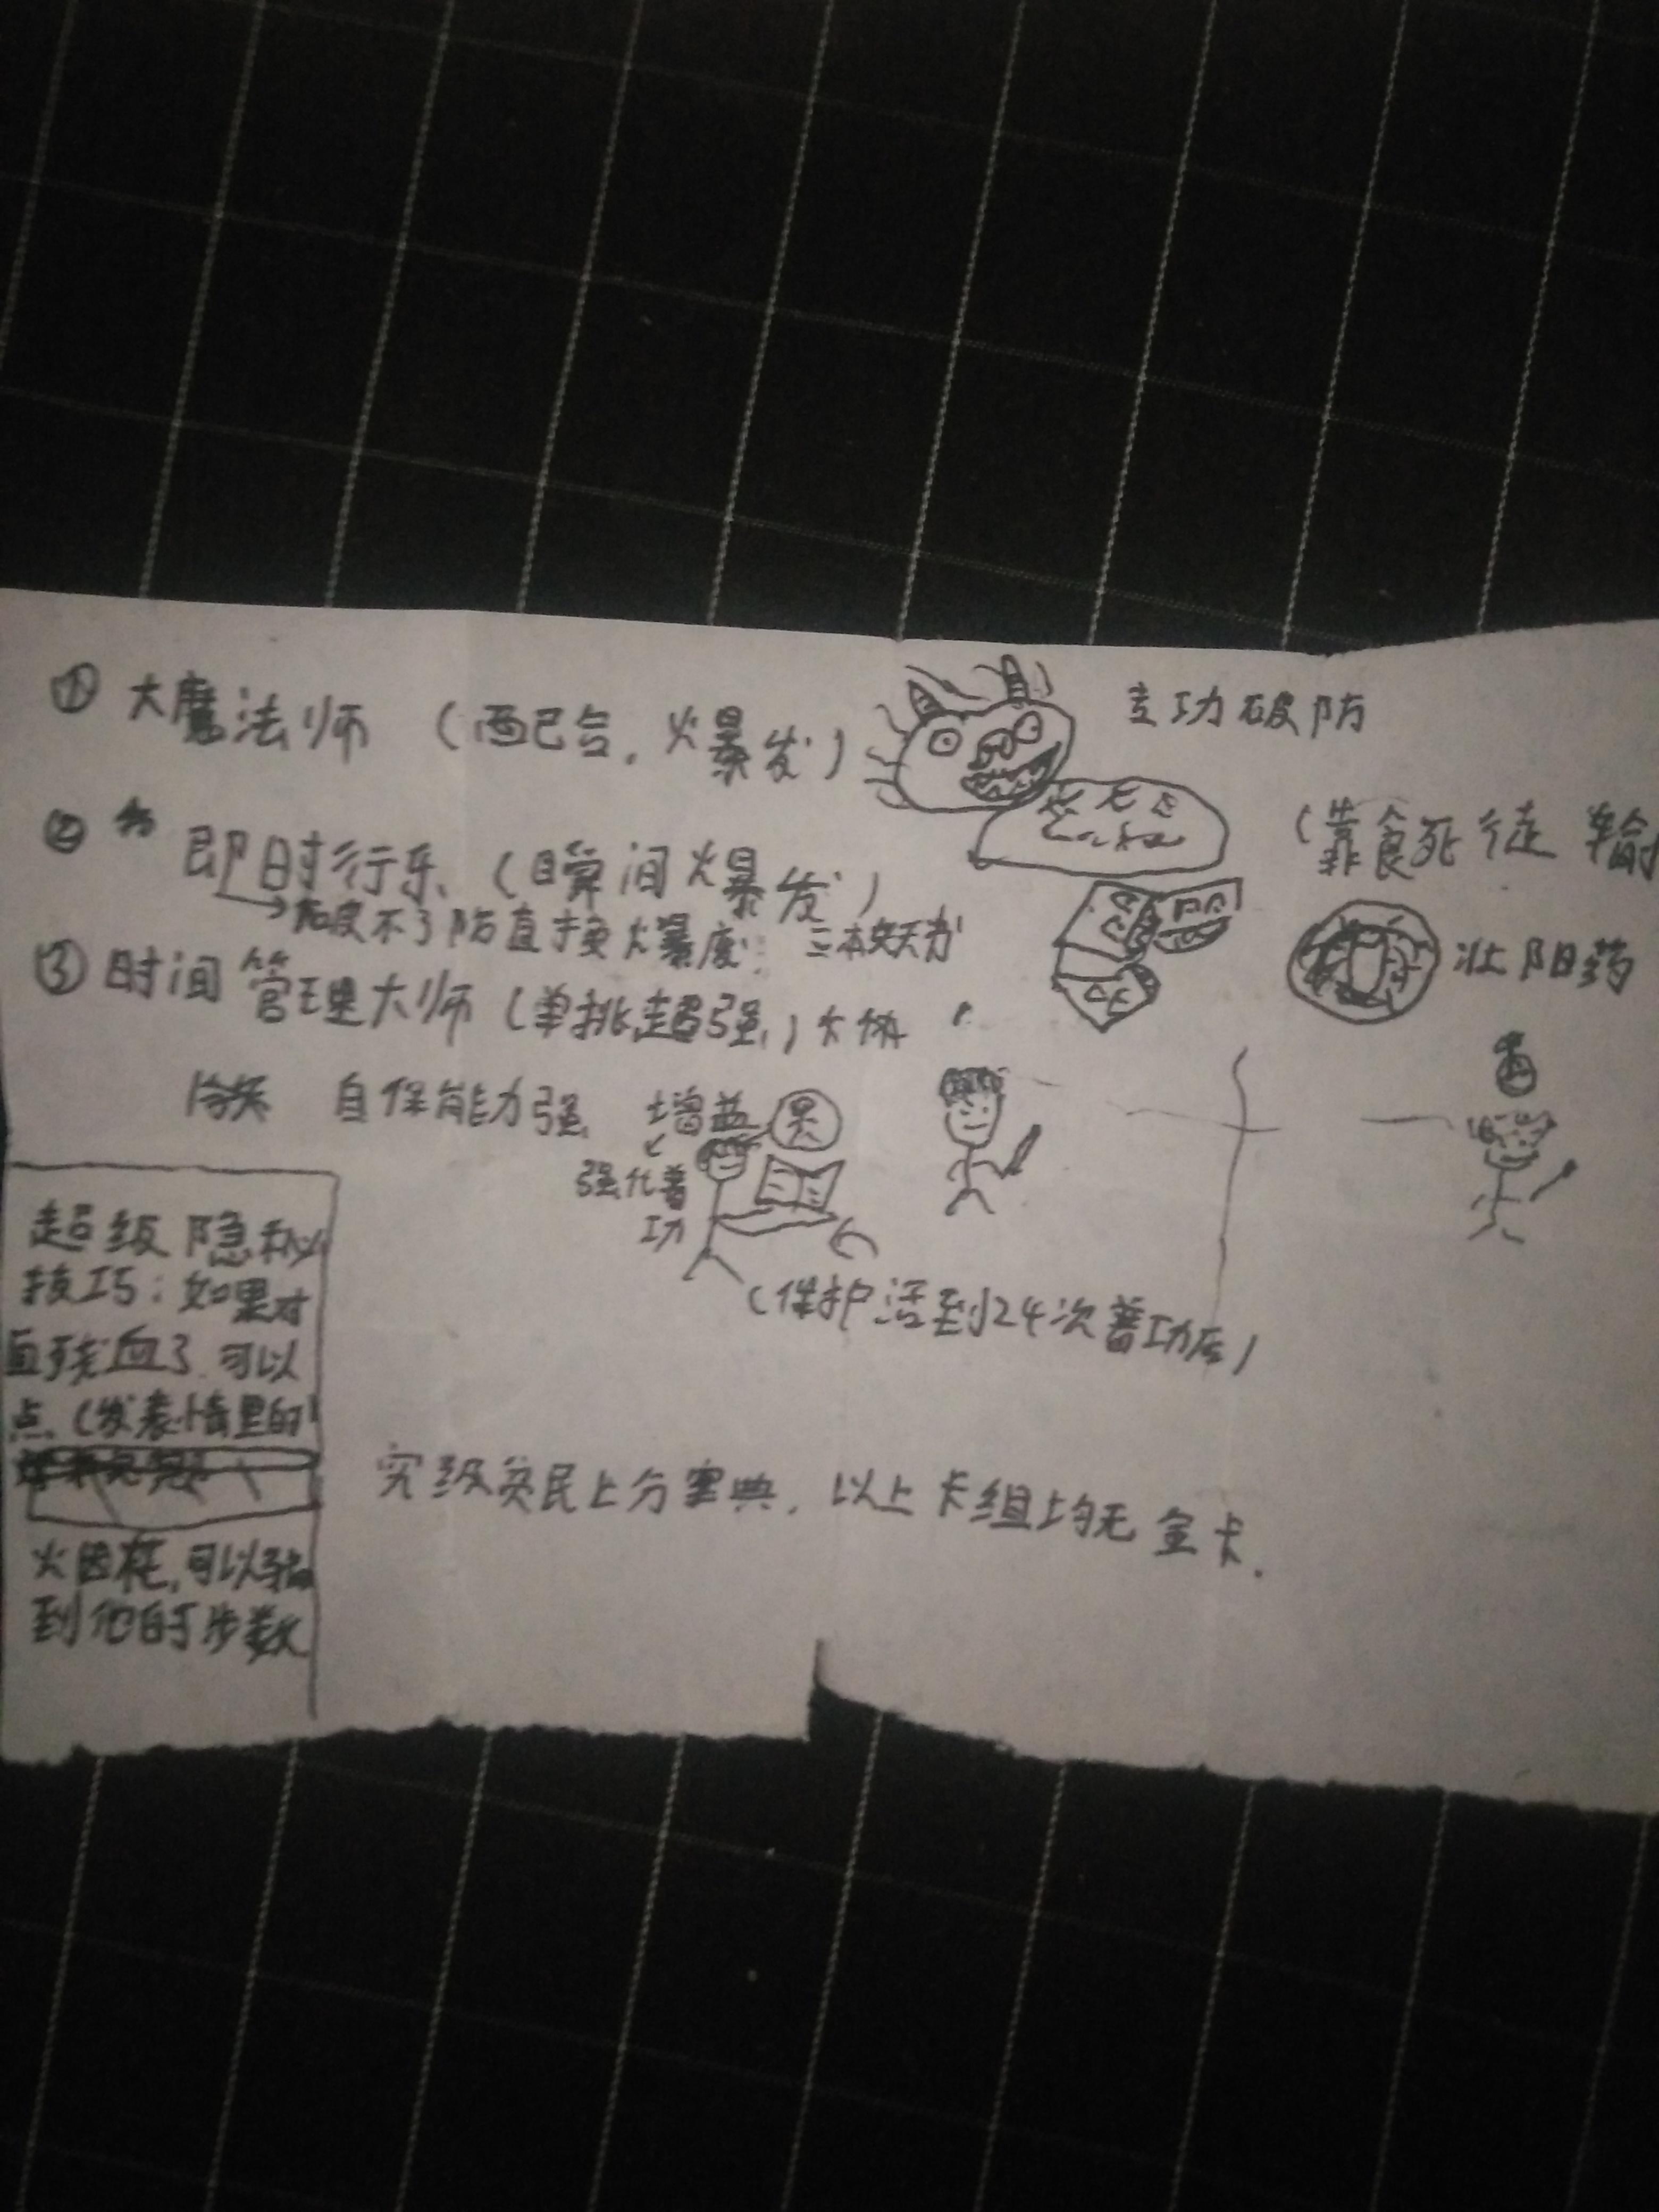 ① 大魔法师（西巴台，火暴发）
主功破防
② 即时行乐（瞬间爆发）
（靠食死徒 输
破不了防直接火暴废
三本
壮阳药
③ 时间管理大师（单挑超强）大俠
自保能力强
增益
强化普
功
（保护活到24次普功后）
超级隐秘
技巧：如果对
面残血了可以
点（发表情里的
可以
到他的步数
究级贫民上分宝典，以上卡组均无金卡．